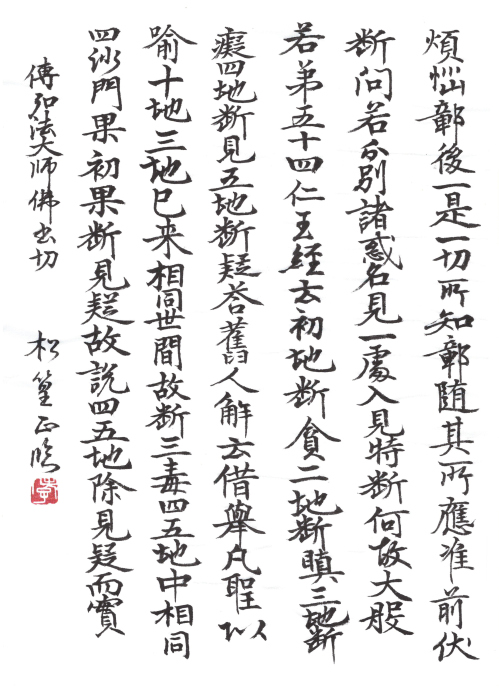 煩惱鄣後一是一切所知鄣随其所應准前伏
断问若分別諸惑名見一處入見特断何故大般
若第五十四仁王經云初地断貪二地断瞋三地断
癡四地断見五地断疑答舊人解云借舉凡聖以
喻十地三地已来相同世間故断三毒四五地中相同
四沙門果初果断見疑故説四五地除見疑而實
傳弘法大师佛书切
松篁正临